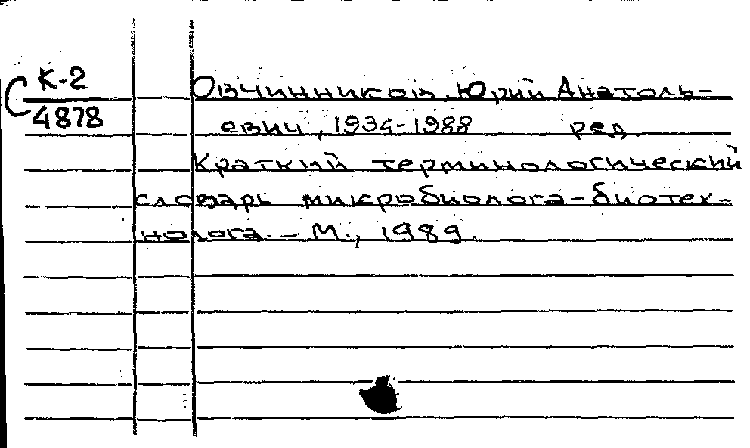 С К-2
4878
Овчинников, Юрий Анатоль-
евич, 1934-1988 ред.
Краткий терминологический
словарь микробиолога-биотех-
нолога. – М., 1989.